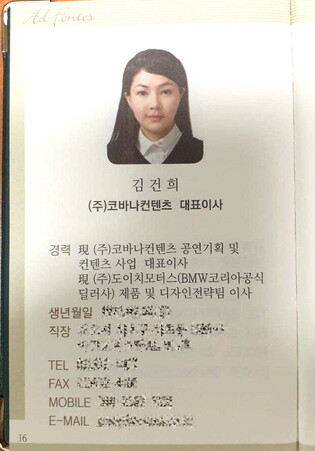 Ad Fontes
김건희
(주)코바나컨텐츠 대표이사
경력 現 (주)코바나컨텐츠 공연기획 및
컨텐츠 사업 대표이사
現 (주)도이치모터스(BMW코리아공식
딜러사) 제품 및 디자인전략팀 이사
생년월일
직장
TEL
FAX
MOBILE
E-MAIL
16